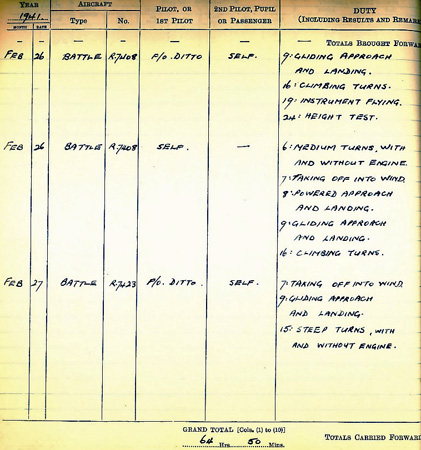 YEAR AIRCRAFT PILOT, OR 2ND PILOT, PUPIL DUTY
1941. Type No. 1ST PILOT OR PASSENGER (INCLUDING RESULTS AND REMAR
MONTH DATE
— — — — TOTALS BROUGHT FORWAR
FEB 26 BATTLE R.7408 F/O. DITTO SELF. 9: GLIDING APPROACH
AND LANDING.
16: CLIMBING TURNS.
19: INSTRUMENT FLYING.
24: HEIGHT TEST.
FEB 26 BATTLE R.7408 SELF. — 6: MEDIUM TURNS, WITH
AND WITHOUT ENGINE.
7: TAKING OFF INTO WIND.
8: POWERED APPROACH
AND LANDING.
9: GLIDING APPROACH
AND LANDING.
16: CLIMBING TURNS.
FEB 27 BATTLE R.7423 F/O. DITTO. SELF. 7: TAKING OFF INTO WIND.
9: GLIDING APPROACH
AND LANDING.
15: STEEP TURNS, WITH
AND WITHOUT ENGINE.
GRAND TOTAL [Cols. (1) to (10)]
64 Hrs. 50 Mins. TOTALS CARRIED FORWAR